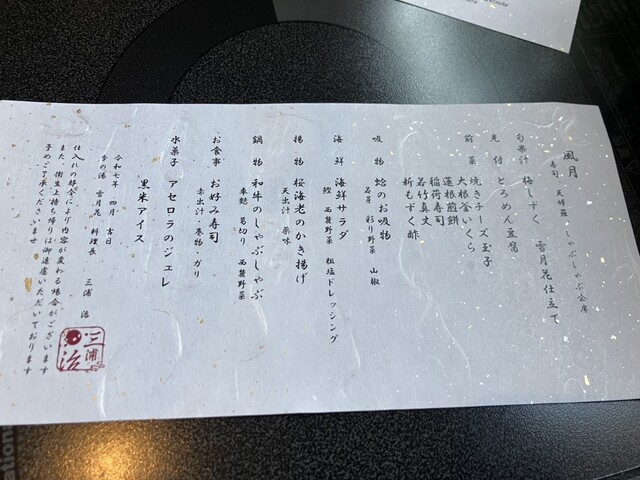 風月
寿司 天婦羅 しゃぶしゃぶ会席
旬果汁 梅しずく 雪月花仕立て
先付 とろめん豆腐
前菜 焼きチーズ玉子
大根釜いくら
蓮根煎餅
稲荷寿司
若竹真丈
新もずく酢
吸物 蛤のお吸物
若芽 彩り野菜 山椒
海鮮 海鮮サラダ
鰹 西麓野菜 粗塩ドレッシング
揚物 桜海老のかき揚げ
天出汁 薬味
鍋物 和牛のしゃぶしゃぶ
車麩 葛切り 西麓野菜
お食事 お好み寿司
赤出汁・巻物・ガリ
水菓子 アセロラのジュレ
黒米アイス
令和七年 四月 吉日
季の湯 雪月花 料理長 三浦 治
仕入れの都合により内容が変わる場合がございます
また、衛生上持ち帰りは御遠慮いただいております
予めご了承くださいませ
三浦
治